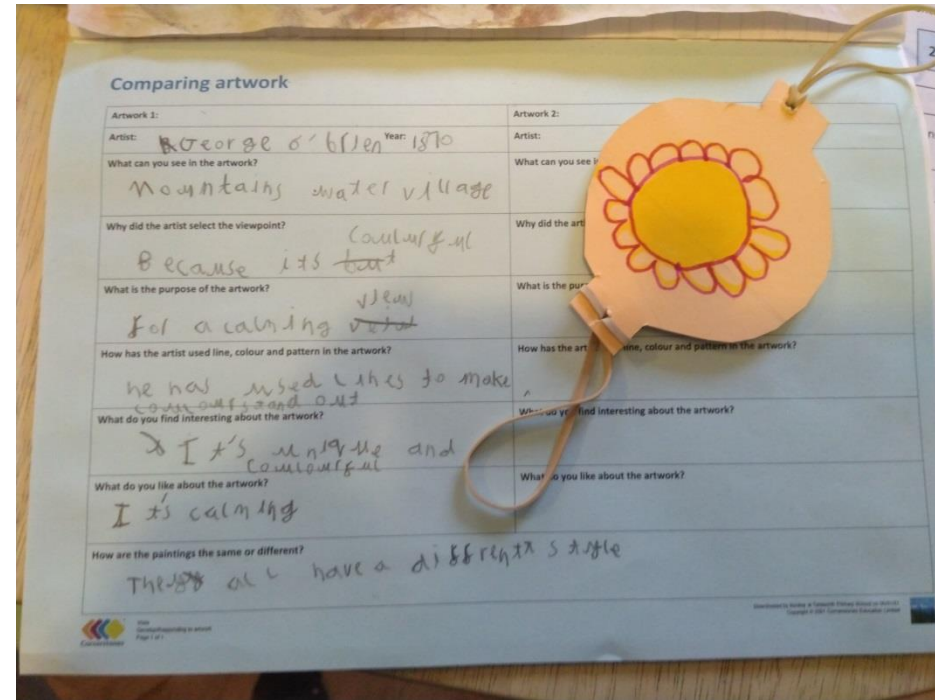 Comparing artwork
Artwork 1:
Artwork 2:
Artist: George o'brien Year: 1870
Artist:
What can you see in the artwork?
Mountains water village
What can you see i
Why did the artist select the viewpoint?
coulurful
Because its
Why did the arti
What is the purpose of the artwork?
view
for a calming
What is the pur
How has the artist used line, colour and pattern in the artwork?
he has used lines to make
stand out
How has the art line, colour and pattern in the artwork?
What do you find interesting about the artwork?
It's unique and
coulourful
What do you find interesting about the artwork?
What do you like about the artwork?
It's calming
What do you like about the artwork?
How are the paintings the same or different?
all have a different style
Cornerstones
Page 1 of 1
2